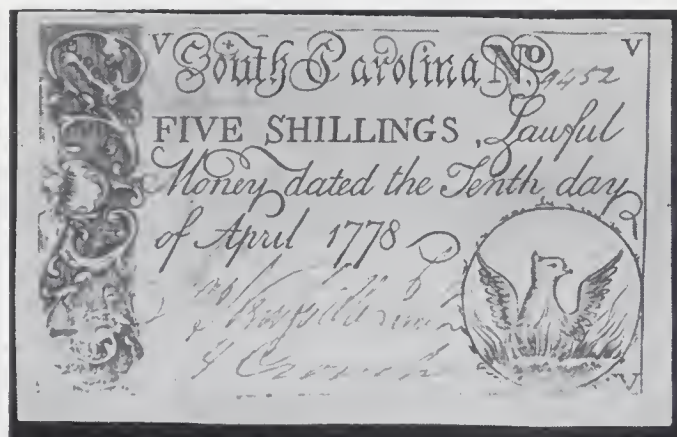 V South Carolina No 9452 V
FIVE SHILLINGS, Lawful
Money dated the Tenth day
of April 1778
V